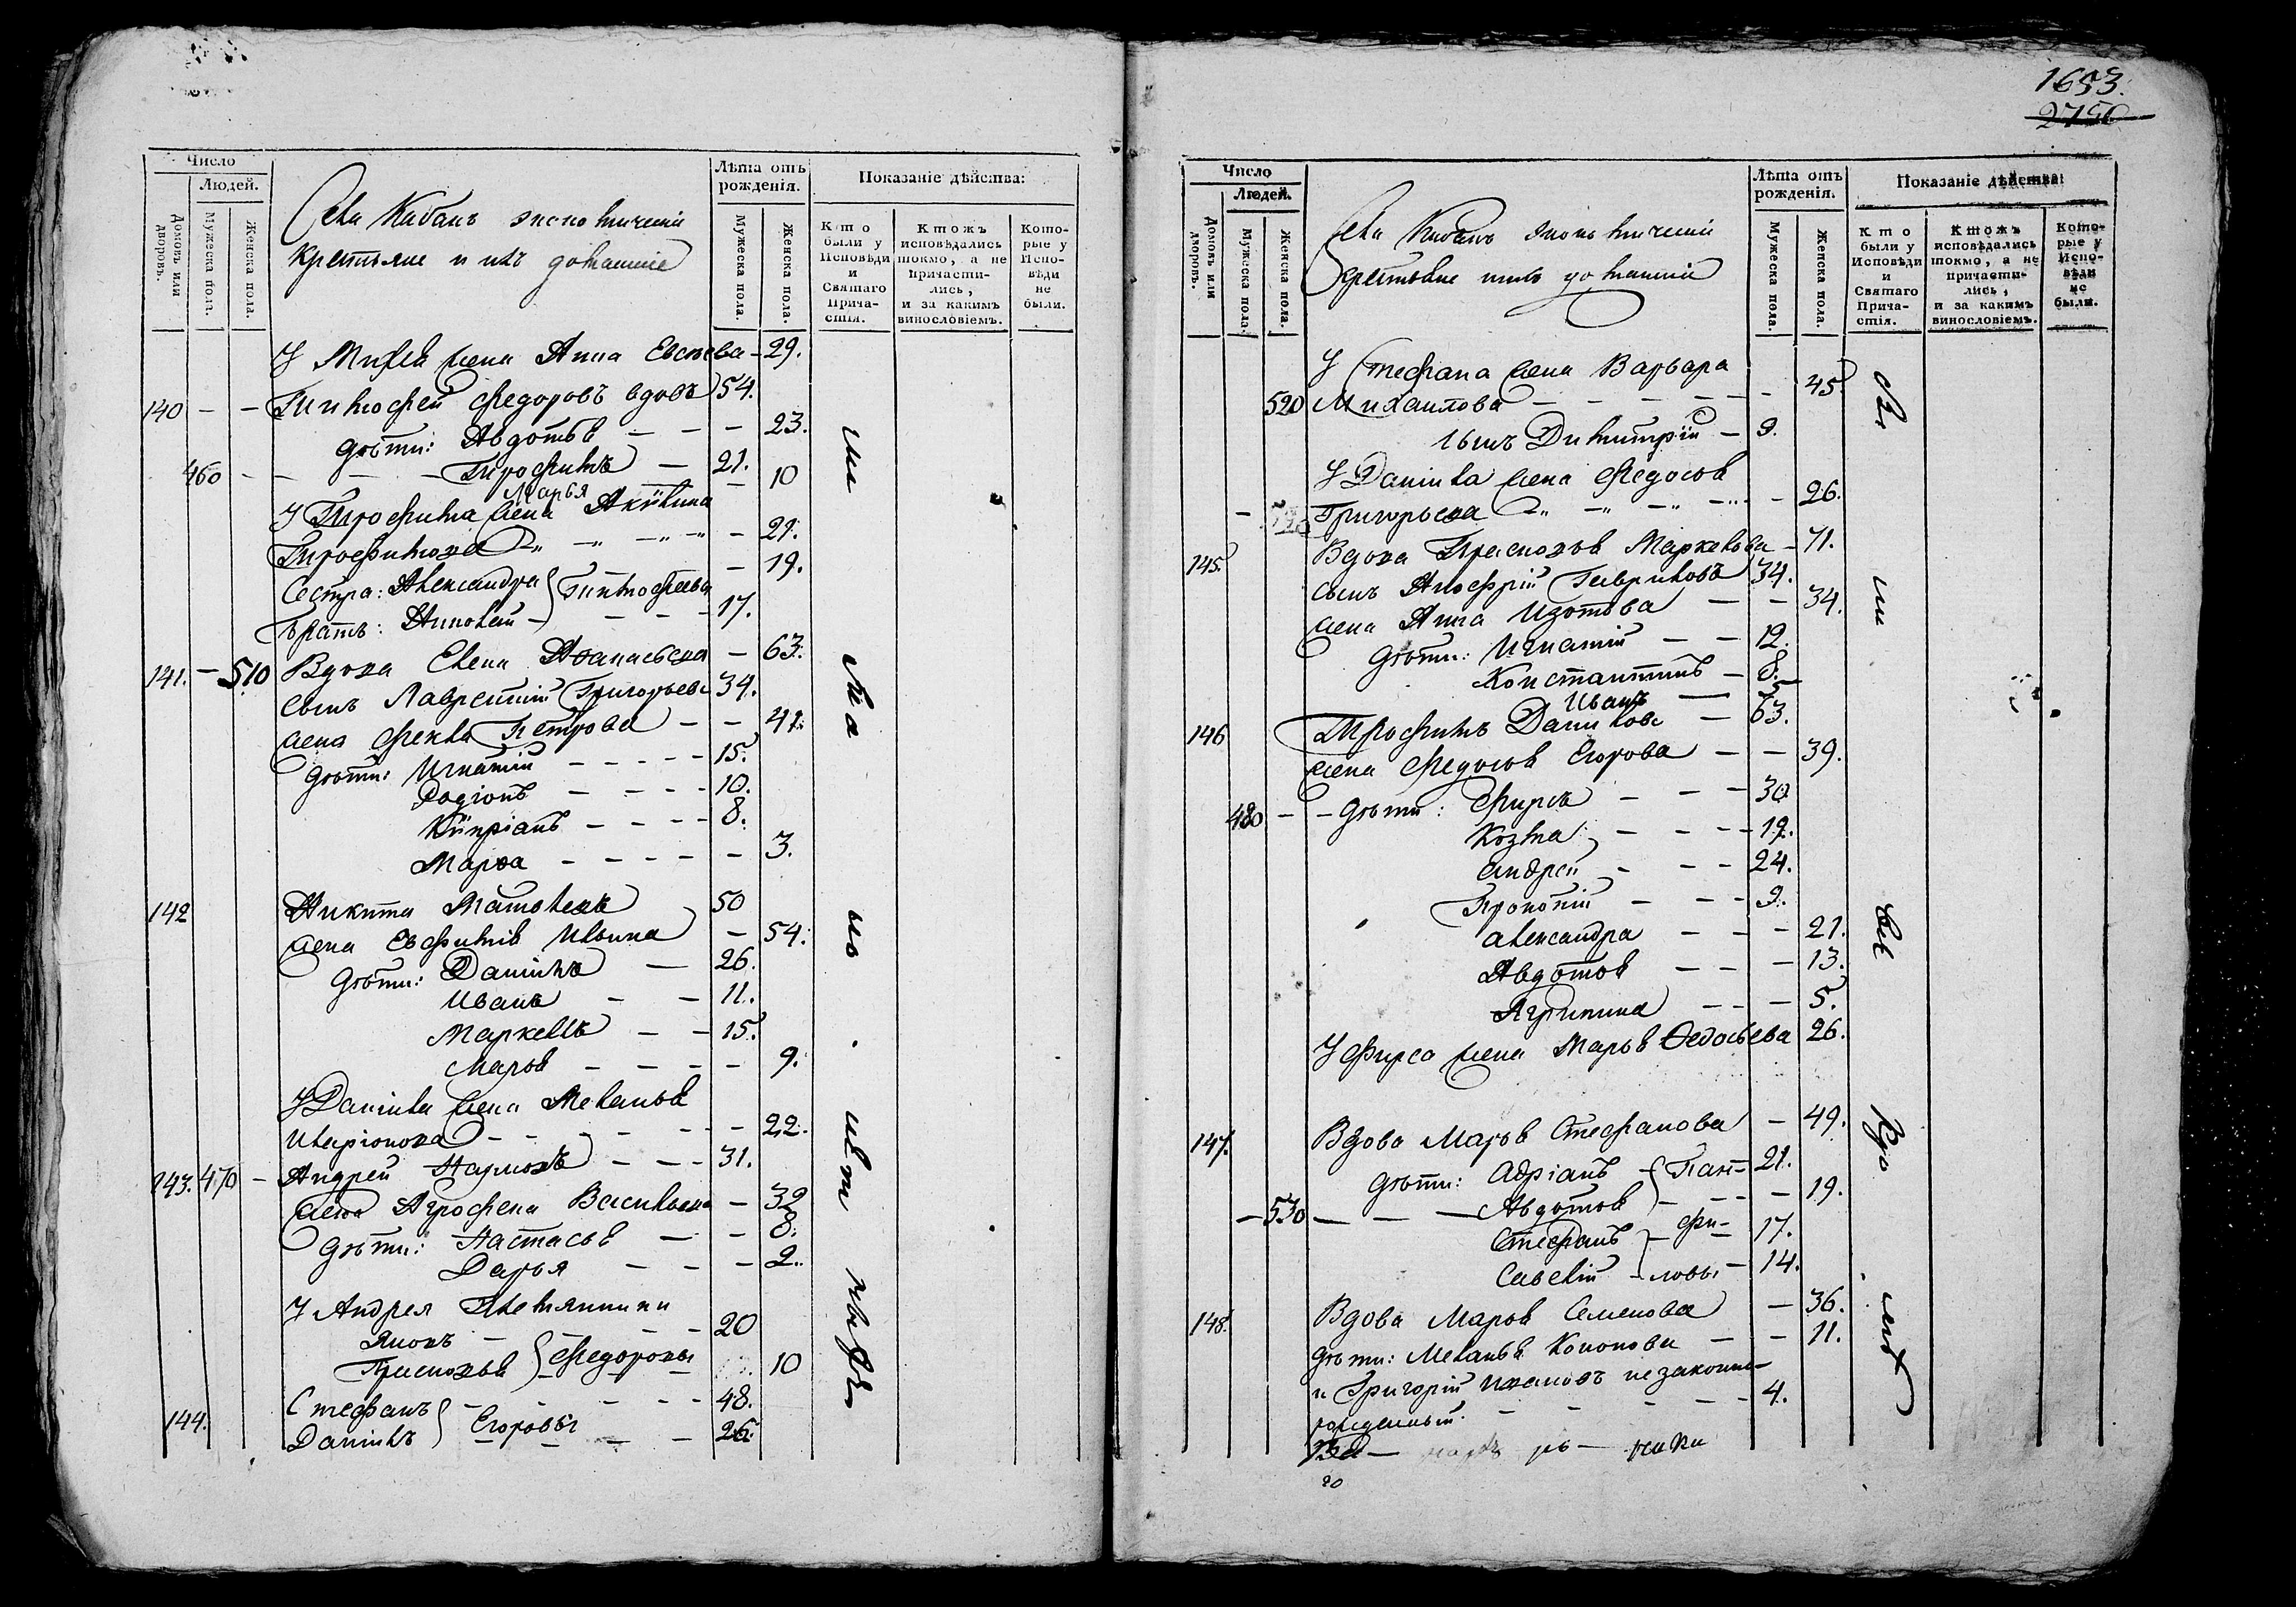 Число
Людей.
Домовъ или дворовъ.
Мужеска пола.
Женска пола.
Села Кабанъ экономическіе
Крестьяне и ихъ домашніе
Лѣта отъ рожденія.
Мужеска пола.
Женска пола.
Показаніе дѣйства:
Кто были у Исповѣди и Святаго Причастія.
Ктожъ исповѣдались токмо, а не причастились, и за какимъ винословіемъ.
Которые у Исповѣди не были.
У жена Анна - 29.
140 - - Тимофей Федоровъ вдовъ 54.
дѣти: Авдотья - - - 23.
460 - - - - Трофимъ - 21.
Марья - - 10
У Трофима жена Акилина
Трофимова - - - - 21.
Сестра: Александра } Тимофеевы - 19.
Братъ: - - - 17.
141. - 510 Вдова Елена Афанасьева - 63.
сынъ Лаврентій Григорьевъ 34.
жена Фекла Петрова - - 41.
дѣти: Игнатій - - - - - 15.
Родіонъ - - - - 10.
Кипріанъ - - - - 8.
Марѳа - - - - - 3.
142 Никита 50
жена Евфимія Ильина - 54.
дѣти: Даніилъ - 26.
Иванъ - - 11.
Маркеллъ - - 15.
Марья - - - - 9.
У Даніила жена Меланья
Иларіонова - - - - - - 22.
143. 470 - Андрей - - - 31.
жена Агрофена Васильева - 32
дѣти: Настасья - - 8.
Дарья - - - 2.
У Андрея Племянники
Яковъ - - - 20
Прасковья } Федоровы 10
144. Стефанъ - - - - - 48.
Даніилъ } Егоровы - - - 26.
1653.
2750
Число
Людей.
Домовъ или дворовъ.
Мужеска пола.
Женска пола.
Села Кабанъ экономическіе
Крестьяне ихъ домашніе
Лѣта отъ рожденія.
Мужеска пола.
Женска пола.
Показаніе дѣйства:
Кто были у Исповѣди и Святаго Причастія.
Ктожъ исповѣдались токмо, а не причастились, и за какимъ винословіемъ.
Которые у Исповѣди не были.
У Стефана жена Варвара
520 Михаилова - - - - - - 45.
сынъ Димитрій - 9.
У Даніила жена Федосья
- Григорьева - - - - - 26.
145. Вдова Прасковья Маркелова - 71.
сынъ Гавриловъ 34.
жена Анна Изотова - - 34.
дѣти: Игнатій - - 12.
Константинъ - 8.
Иванъ -
146 Трофимъ Даниловъ - 63.
жена Федосья Егорова - - 39.
480 - - дѣти: Фирсъ - - - 30
Козма - - - - 19.
Андрей - - - 24.
Прокопій - - - 9.
Александра - - - 21.
Авдотья - - - 13.
Агрипина - - - 5.
У Фирса жена Марья Ѳедосѣева 26.
147. Вдова Марья Стефанова - 49.
дѣти: Адріанъ - } Пан- 21.
- 530 - - - Авдотья - - - 19.
Стефанъ - фи- 17.
Савелій - ловы - 14.
148. Вдова Марья Семенова - 36.
дѣти: Меланья Кононова - - 11.
и Григорій Ивановъ незаконно-
рожденный. - - - - - 4.